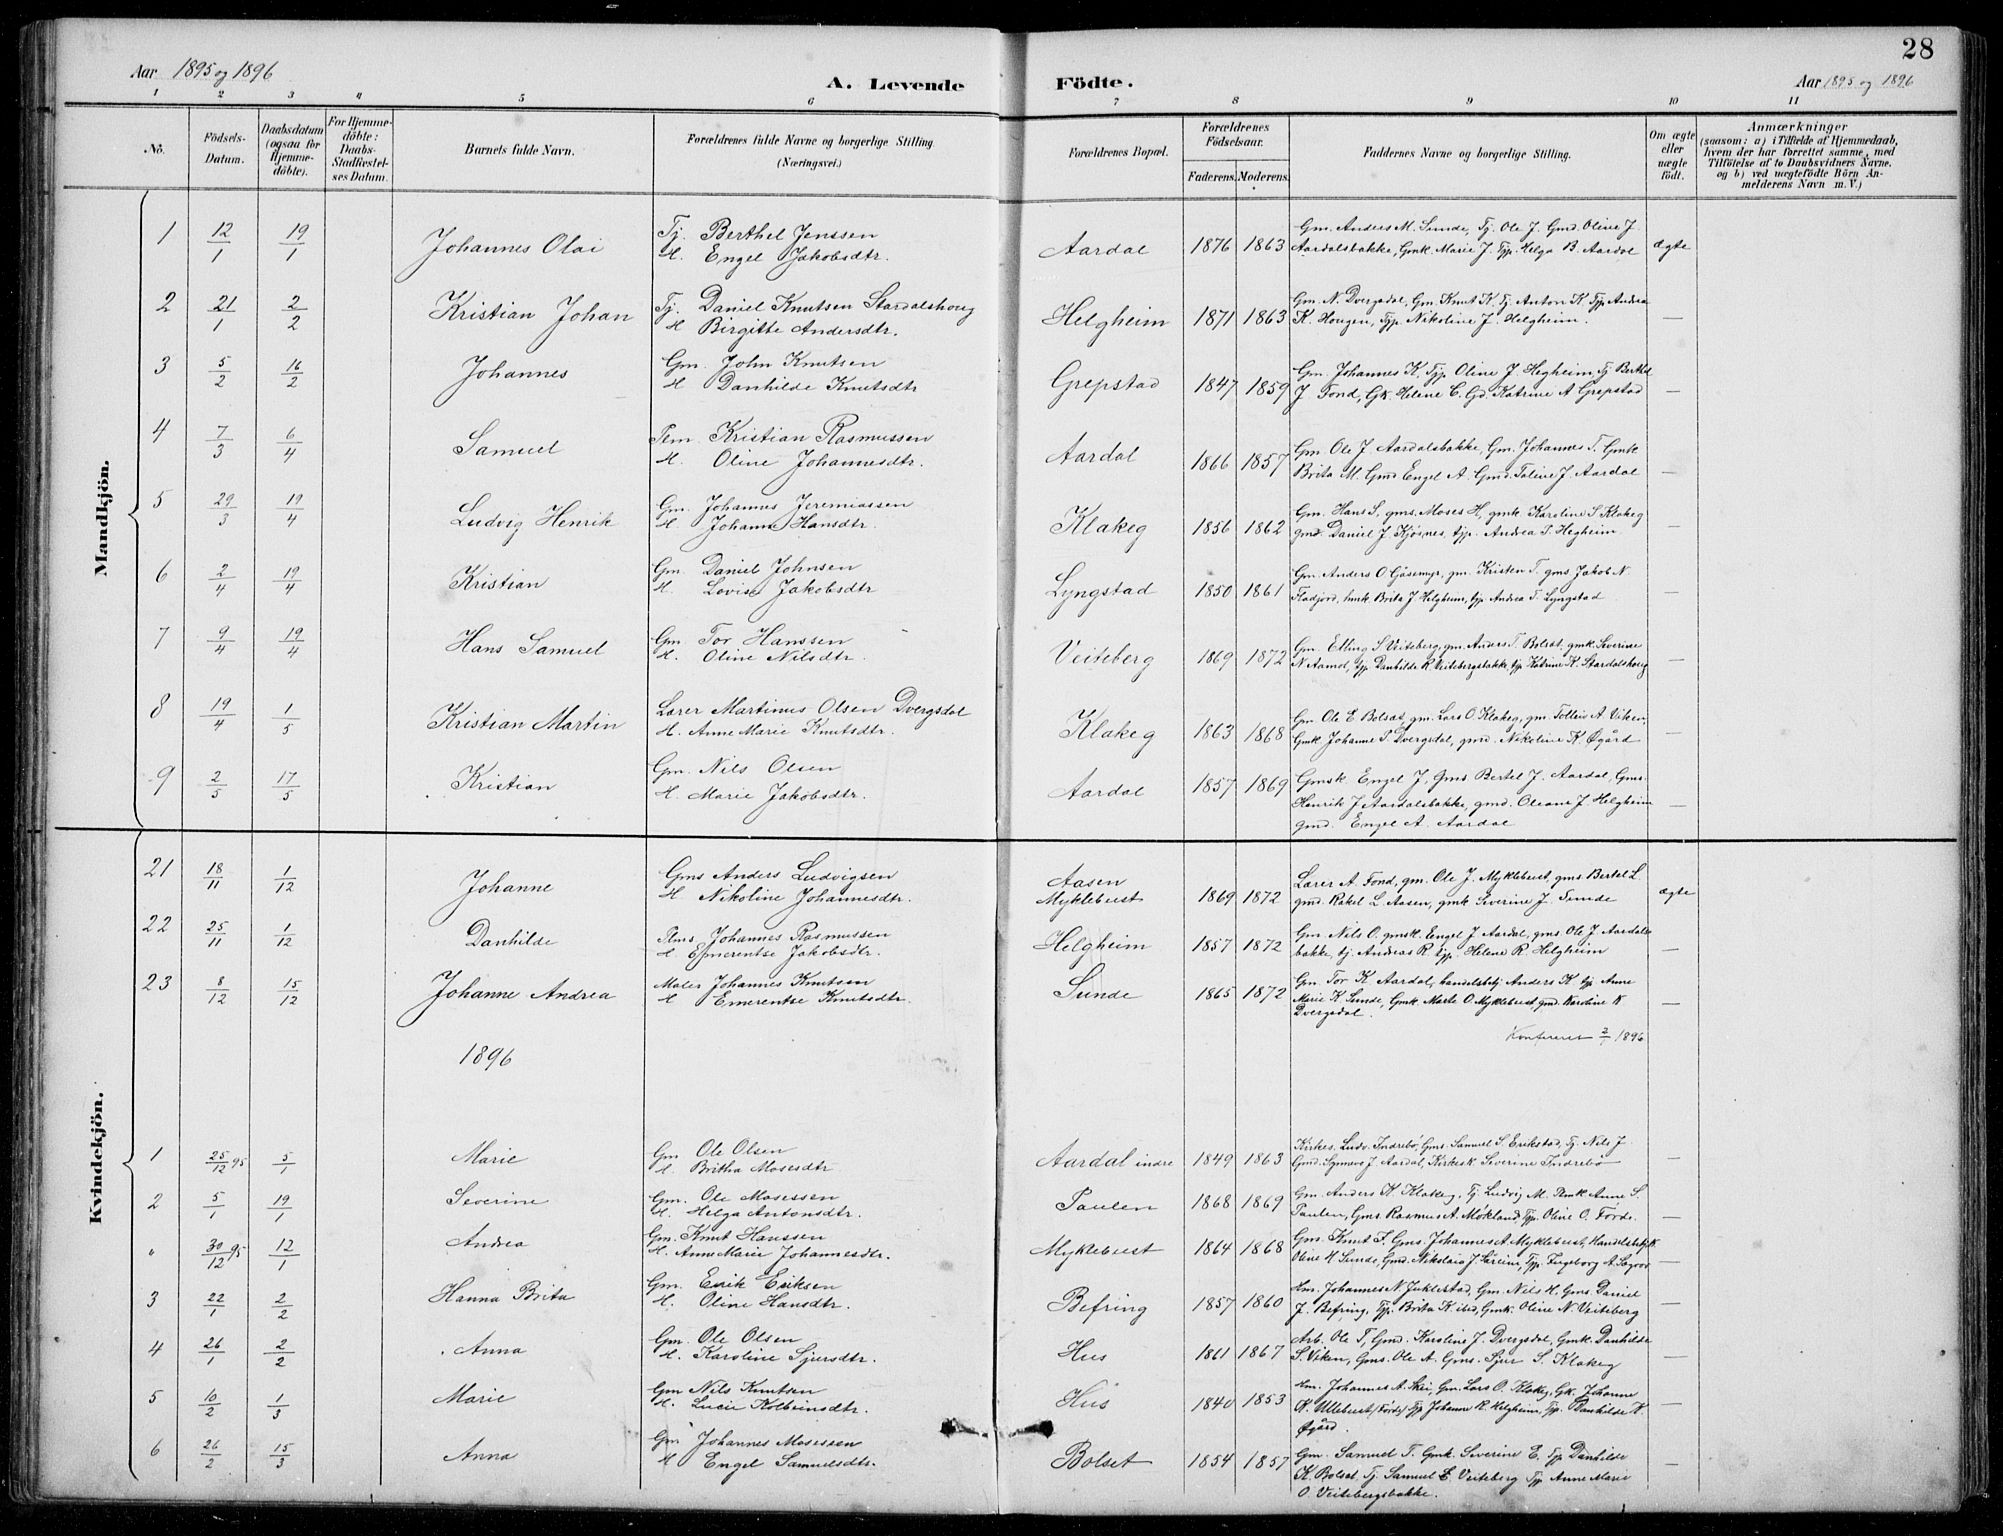 28
Aar 1895 og 1896 A. Levende Födte. Aar 1895 og 1896
1 2 3 4 5 6 7 8 9 10 11
No. Födsels-Datum. Daabsdatum (ogsaa for Hjemme-döbte). For Hjemme-döbte: Daabs-Stadfæstel-ses Datum. Barnets fulde Navn. Forældrenes fulde Navne og borgerlige Stilling (Næringsvei.) Forældrenes Bopæl. Forældrenes Födselsaar. Faderens. Moderens. Faddernes Navne og borgerlige Stilling. Om ægte eller uægte födt. Anmærkninger (saasom: a) i Tilfælde af Hjemmedaab, hvem der har forrettet samme, med Tilföielse af to Daabsvidners Navne, og b) ved uægtefödte Börn An-melderens Navn m. V.)
Mandkjön.
1 12/1 19/1 Johannes Olai Tj. Berthel Jenssen Aardal 1876 1863 Gm. Anders M. Sunde, Tj. Ole J. Gmd. Oline J. ægte
H. Engel Jakobsdtr. Aardalsbakke, Gmk. Marie J. Tjp. Helga B. Aardal
2 21/1 2/2 Kristian Johan Tj. Daniel Knutsen Stardalshoug Helgheim 1871 1863 Gm. N. Dvergsdal, Gm. Knut K. Tj. Anton K. Tjp. Andrea —
H Birgitte Andersdtr. K. Hougen, Tjp. Nikoline J. Helgheim.
3 5/2 16/2 Johannes Gm. John Knutsen Grepstad 1847 1859 Gm. Johannes K, Tjp. Oline J Hegheim, Tj Berthel —
H Danhilde Knutsdtr J. Fond, Gk. Helene C. Gd. Katrine A Grepstad
4 7/3 6/4 Samuel Plm. Kristian Rasmussen Aardal 1866 1857 Gm. Ole J. Aardalsbakke, Gm. Johannes T. Gmk —
H. Oline Johannesdtr. Brita M. Gmd Engel A. Gmd. Toline J. Aardal
5 29/3 19/4 Ludvig Henrik Gm. Johannes Jeremiassen Klakeg 1856 1862 Gm. Hans S. gms. Moses H, gmk. Karoline S Klakeg —
H. Johanne Hansdtr. gms. Daniel J. Kjøsnes, tjp. Andrea T. Hegheim.
6 2/4 19/4 Kristian Gm. Daniel Johnsen Lyngstad 1850 1861 Gm. Anders O. Gjøsemyr, gm. Kristen T. gms. Jakob N. —
H. Lovise Jakobsdtr Fladjord, hmk. Brita J Helgheim, tjp. Andrea T. Lyngstad
7 9/4 19/4 Hans Samuel Gm. Tor Hanssen Veiteberg 1869 1872 Gm. Elling S Veiteberg, gm. Anders T. Bolset, gmk. Severine —
H. Oline Nilsdtr. N Aamot, tjp Danhilde R. Veitebergsbakke, tjp Katrine K. Stardalshoug
8 19/4 1/5 Kristian Martin Lærer Martinus Olsen Dvergsdal Klakeg 1863 1868 Gm Ole E Bolset, gm. Lars O. Klakeg, gm. Tolleiv A Viken, —
H. Anne Marie Knutsdtr. Gmk Johanne P. Dvergsdal, gmd. Nikoline K. Øgård
9 2/5 17/5 Kristian Gm. Nils Olsen Aardal 1857 1869 Gmsk Engel J, Gms Bertel J. Aardal, Gms. —
H. Marie Jakobsdtr. Henrik J Aardalsbakke, gmd. Oleane J. Helgheim
gmd. Engel A. Aardal
Kvindekjön.
21 18/11 1/12 Johanne Gms Anders Ludvigsen Aasen 1869 1872 Lærer A. Fond, gm. Ole J. Myklebust, gms. Bertel L. ægte
H Nikoline Johannesdtr. Myklebust gmd. Rakel L. Aasen, gmk Severine J. Sunde
22 25/11 1/12 Danhilde Plms Johannes Rasmussen Helgheim 1857 1872 Gm Nils O. gmsk. Engel J Aardal, gms Ole J Aardals —
H Emerentse Jakobsdtr. bakke, tj. Andreas R tjp. Helene R. Helgheim
23 8/12 15/12 Johanne Andrea Maler Johannes Knutsen Sunde 1865 1872 Gm. Tor K Aardal, handelsbtj Anders K tjp Anne —
H Emerentse Knutsdtr. Marie K Sunde, Gmk. Marte O. Myklebust, gmd. Karoline K
Dvergsdal.
Konfereret 2/1 1896
1896
1 25/12 95 5/1 Marie Gm Ole Olsen Aardal indre 1849 1863 Kirkes. Ludv. Indrebö, Gms. Samuel S. Erikstad, Tj. Nils J
H. Britha Mosesdtr Gmd. Synneve J. Aardal, Kirkesk. Severine Indrebö
2 5/1 19/1 Severine Gm. Ole Mosessen Paulen 1868 1869 Gm. Anders K. Klakeg, Tj. Ludvig M. Plmk Anne S. —
H. Helga Antonsdtr. Paulen, Gms. Rasmus A. Mökland, Tjp. Oline O. Förde.
" 30/12 95 12/1 Andrea Gm. Knut Hanssen Myklebust 1864 1868 Gms. Knut F. Gms. Johannes A. Myklebust, Handelsbtjk —
H. Anne Marie Johannesdtr. Oline H Sunde, Gmd. Nikolaia J. Tjp. Ingeborg A.
3 22/1 2/2 Hanna Brita Gm. Erik Eriksen Befring 1857 1860 Hm. Johannes N Juklestad, Gm. Nils H. Gms. Daniel —
H. Oline Hansdtr. J. Befring, Tjp. Brita K. ibd, Gmk. Oline N. Veiteberg
4 26/1 2/2 Anna Gm. Ole Olsen Hus 1861 1867 Arb. Ole T, Gmd. Karoline J. Dvergsdal, Gmk. Danhilde —
H. Karoline Sjursdtr. S. Viken, Gms. Ole A. Gms. Sjur S. Klakeg
5 10/2 1/3 Marie Gm Nils Knutsen Hus 1840 1853 Hm. Johannes A. Skei, Gm. Lars O. Klakeg, Gk. Johanne —
H. Lucie Kolbeinsdtr. K. Ullebust (Förde) Tjp Johanne K. Helgheim, Tjp. Danhilde K.
Øgård.
6 26/2 15/3 Anna Gm Johannes Mosessen Bolset 1854 1857 Gm. Samuel T. Gmk. Severine E. Tjp Danhilde —
H Engel Samuelsdtr. K. Bolset, Tj. Samuel E. Veiteberg Tjp Anne Marie
O. Veitebergsbakke.